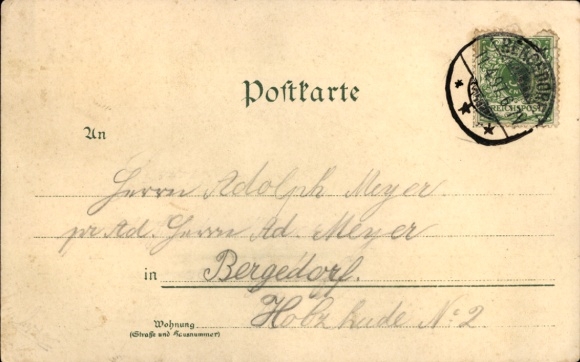 REICHSPOST
Postkarte
An
Herrn Adolph Meyer.
pr Ad. Herrn Ad. Meyer
in Bergedorf.
Wohnung
(Straße und Hausnummer)
Holzkade No 2